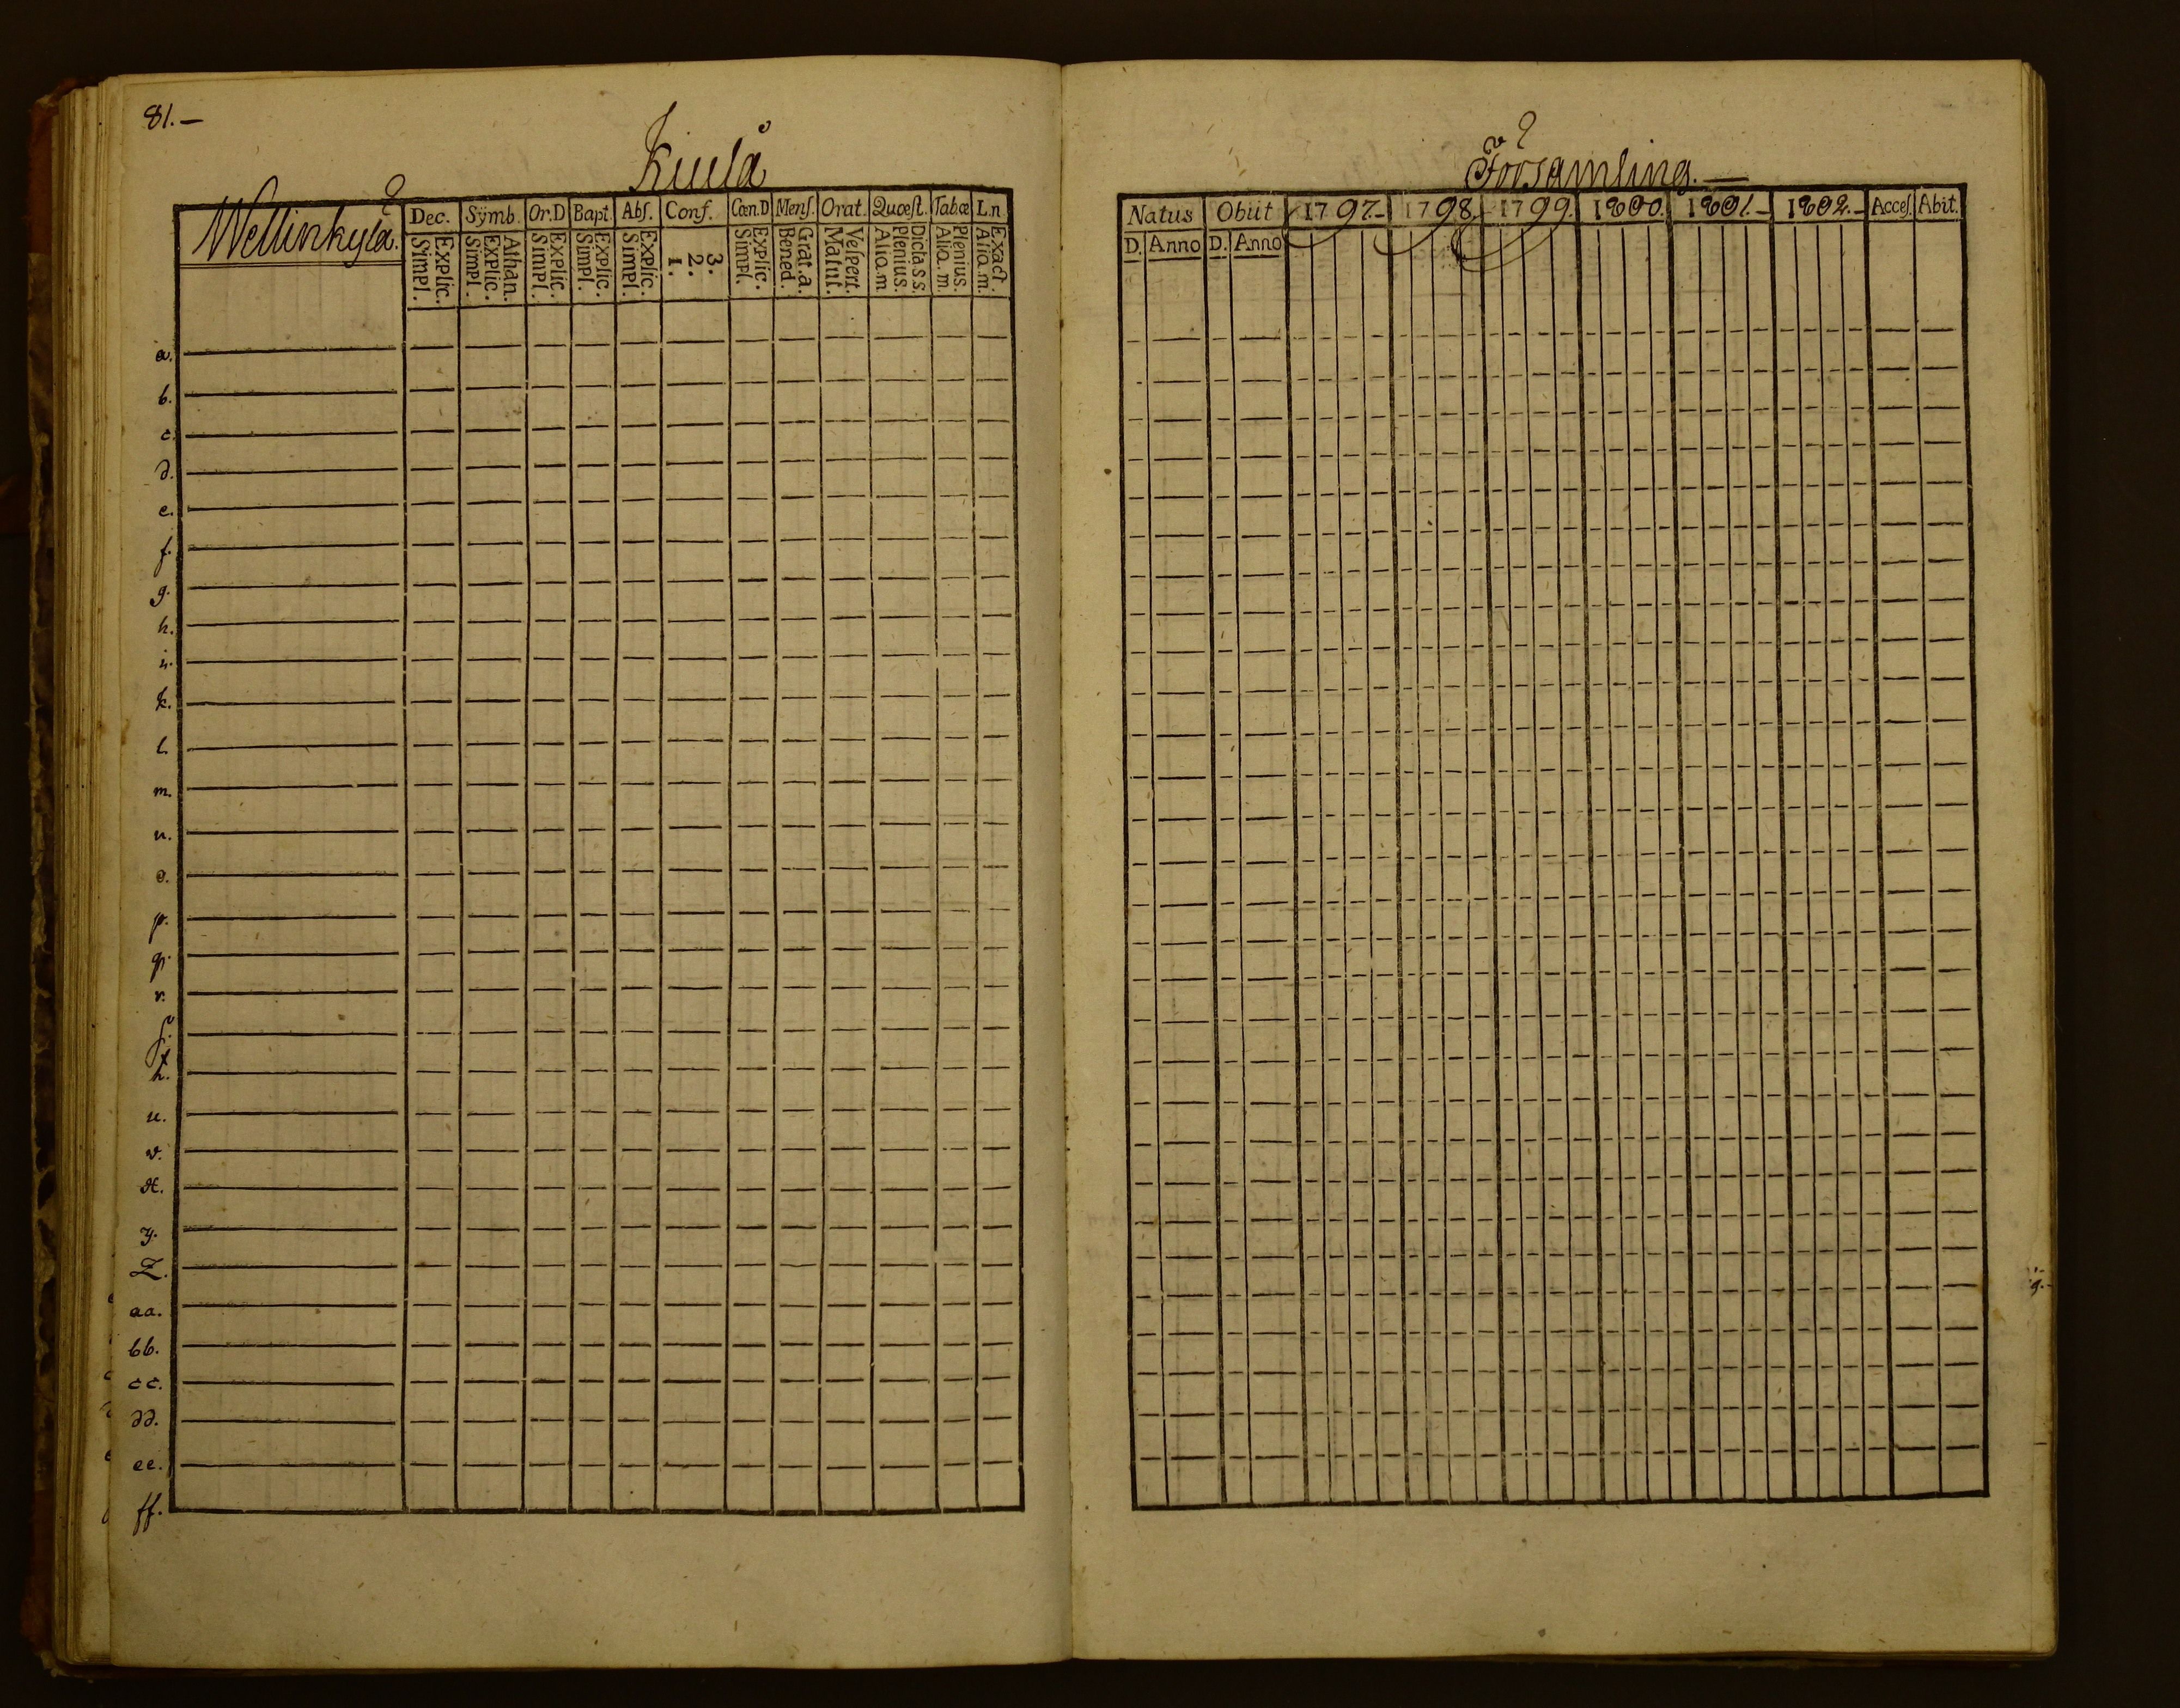 81.—
Kiulå
Församling.—
Wellinkylä.
Dec. Sÿmb. Or.D Bapt. Abſ. Conf. Cœn.D Menſ. Orat. Quœſt. Tabœ L.n.
Explic. Simpl. Athan. Explic. Simpl. Explic. Simpl. Explic. Simpl. Explic. Simpl. 3. 2. 1. Explic. Simpl. Grat.a. Bened. Veſpert. Matut. Dicta s.s. Plenius. Alia.m. Plenius. Alia.m. Exact. Alia.m.
a.
b.
c.
d.
e.
f.
g.
h.
i.
k.
l.
m.
n.
o.
p.
q.
r.
ſ.
t.
u.
v.
x.
y.
Z.
aa.
bb.
cc.
dd.
ee.
ff.
Natus Obiit 1797.- 1798.- 1799. 1800. 1801.- 1802.- Acceſ. Abit.
D. Anno D. Anno